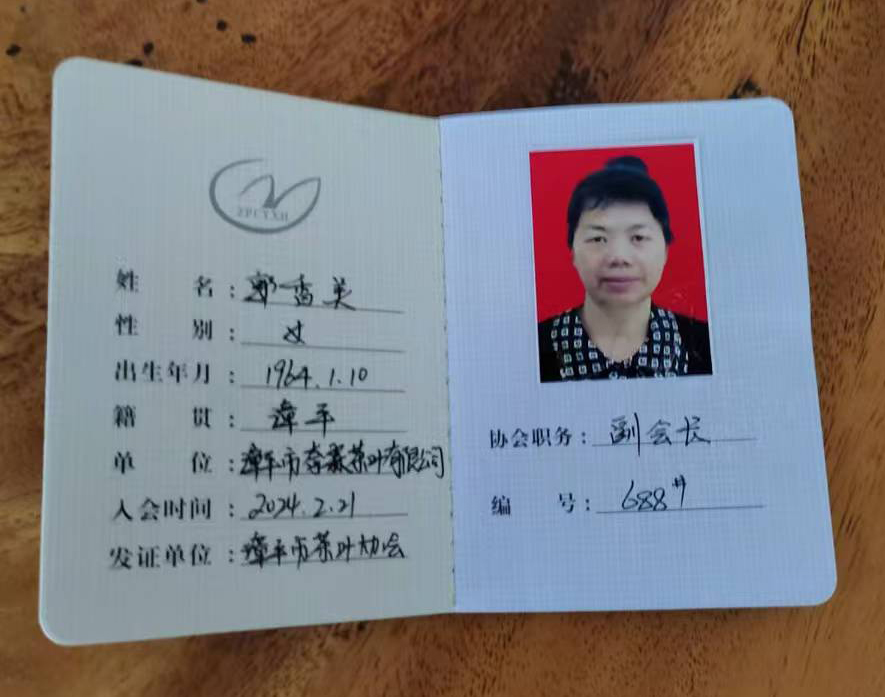 ZPCYXH
姓 名：郭香美
性 别：女
出生年月：1964.1.10
籍 贯：漳平
单 位：漳平市 茶叶有限公司
入会时间：2024.2.21
发证单位：漳平市茶叶协会
协会职务：副会长
编 号：688#